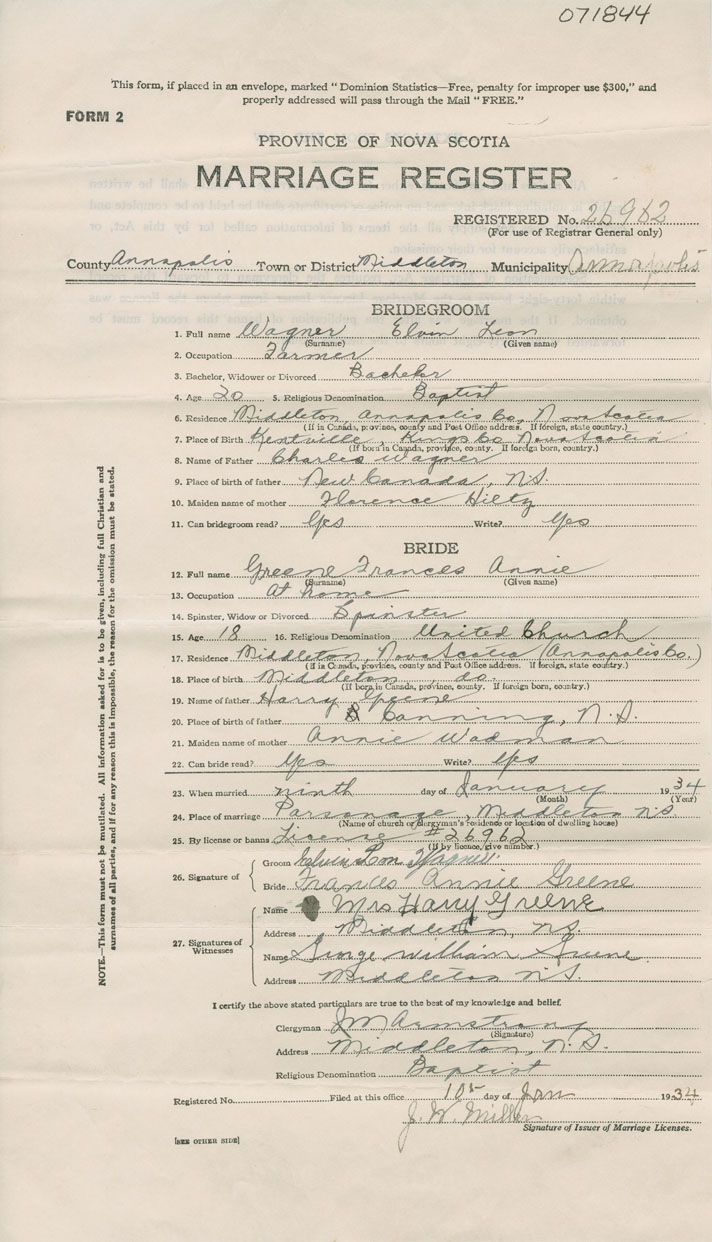 071844
This form, if placed in an envelope, marked "Dominion Statistics—Free, penalty for improper use $300," and
properly addressed will pass through the Mail "FREE."
FORM 2
PROVINCE OF NOVA SCOTIA
MARRIAGE REGISTER
REGISTERED No. 26962
(For use of Registrar General only)
County Annapolis Town or District Middleton Municipality Annapolis
BRIDEGROOM
1. Full name Wagner Elvin Leon
(Surname) (Given name)
2. Occupation Farmer
3. Bachelor, Widower or Divorced Bachelor
4. Age 20 5. Religious Denomination Baptist
6. Residence Middleton, Annapolis Co, Nova Scotia
(If in Canada, province, county and Post Office address. If foreign, state country.)
7. Place of Birth Kentville, Kings Co Nova Scotia
(If born in Canada, province, county. If foreign born, country.)
8. Name of Father Charles Wagner
9. Place of birth of father New Canada, N.S.
10. Maiden name of mother Florence Hiltz
11. Can bridegroom read? Yes Write? Yes
BRIDE
12. Full name Greene Frances Annie
(Surname) (Given name)
13. Occupation At home
14. Spinster, Widow or Divorced Spinster
15. Age 18 16. Religious Denomination United Church
17. Residence Middleton, Nova Scotia (Annapolis Co.)
(If in Canada, province, county and Post Office address. If foreign, state country.)
18. Place of birth Middleton, do.
(If born in Canada, province, county. If foreign born, country.)
19. Name of father Harry Greene
20. Place of birth of father Canning, N.S.
21. Maiden name of mother Annie Wadman
22. Can bride read? Yes Write? Yes
23. When married ninth day of January 1934
(Month) (Year)
24. Place of marriage Parsonage, Middleton N.S.
(Name of church or clergyman's residence or location of dwelling house)
25. By license or banns License #26962
(If by licence, give number.)
26. Signature of
Groom Elvin Leon Wagner.
Bride Frances Annie Greene
27. Signatures of Witnesses
Name Mrs Harry Greene
Address Middleton, N.S.
Name George William Greene
Address Middleton N.S.
I certify the above stated particulars are true to the best of my knowledge and belief.
Clergyman J M Armstrong
(Signature)
Address Middleton, N.S.
Religious Denomination Baptist
Registered No. Filed at this office 10th day of Jan 1934
J. W. Miller
Signature of Issuer of Marriage Licenses.
[SEE OTHER SIDE]
NOTE.—This form must not be mutilated. All information asked for is to be given, including full Christian and
surnames of all parties, and if for any reason this is impossible, the reason for the omission must be stated.